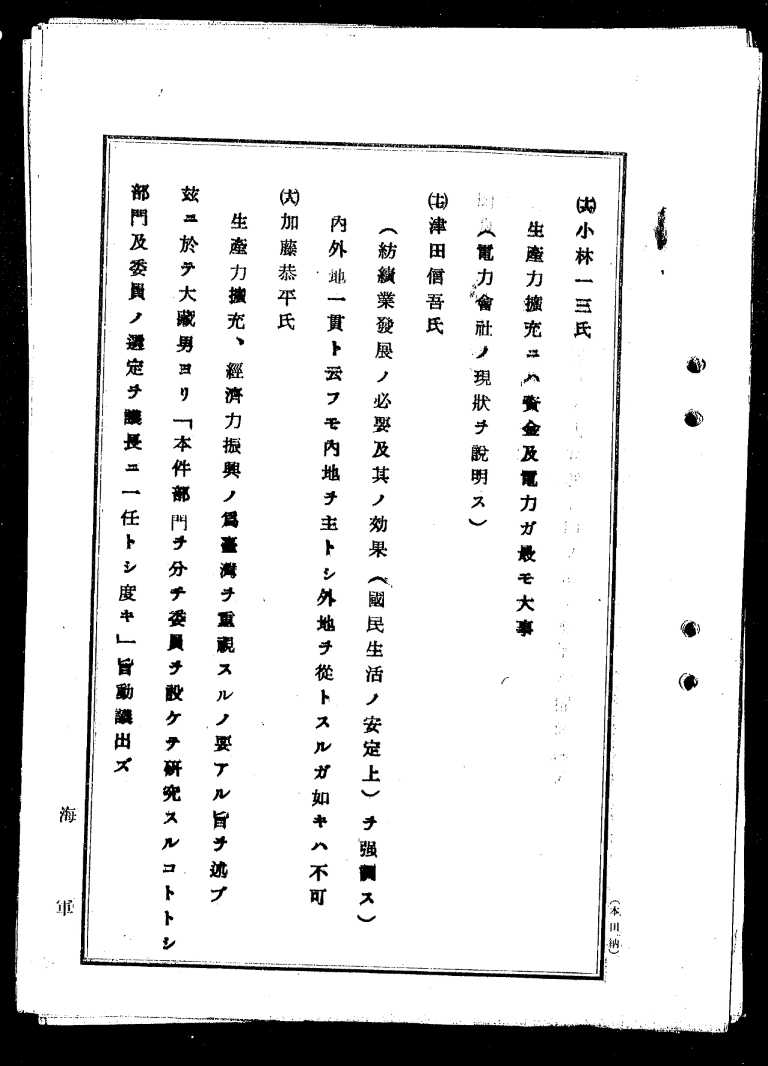 小林一三氏
生産力擴充ニハ資金及電力ガ最モ大事
(電力會社ノ現狀ヲ說明ス)
(七)津田信吾氏
(紡績業發展ノ必要及其ノ効果(國民生活ノ安定上)ヲ强調ス)
內外地一貫ト云フモ內地ヲ主トシ外地ヲ從トスルガ如キハ不可
加藤恭平氏
生產力擴充、經濟力振興ノ爲臺灣ヲ重視スルノ要アル旨ヲ述ブ
玆ニ於テ大藏男ヨリ「本件部門ヲ分チ委員ヲ設ケテ硏究スルコトトシ
部門及委員ノ選定ヲ議長ニ一任トシ度キ」旨動議出ズ
海軍
(本田納)